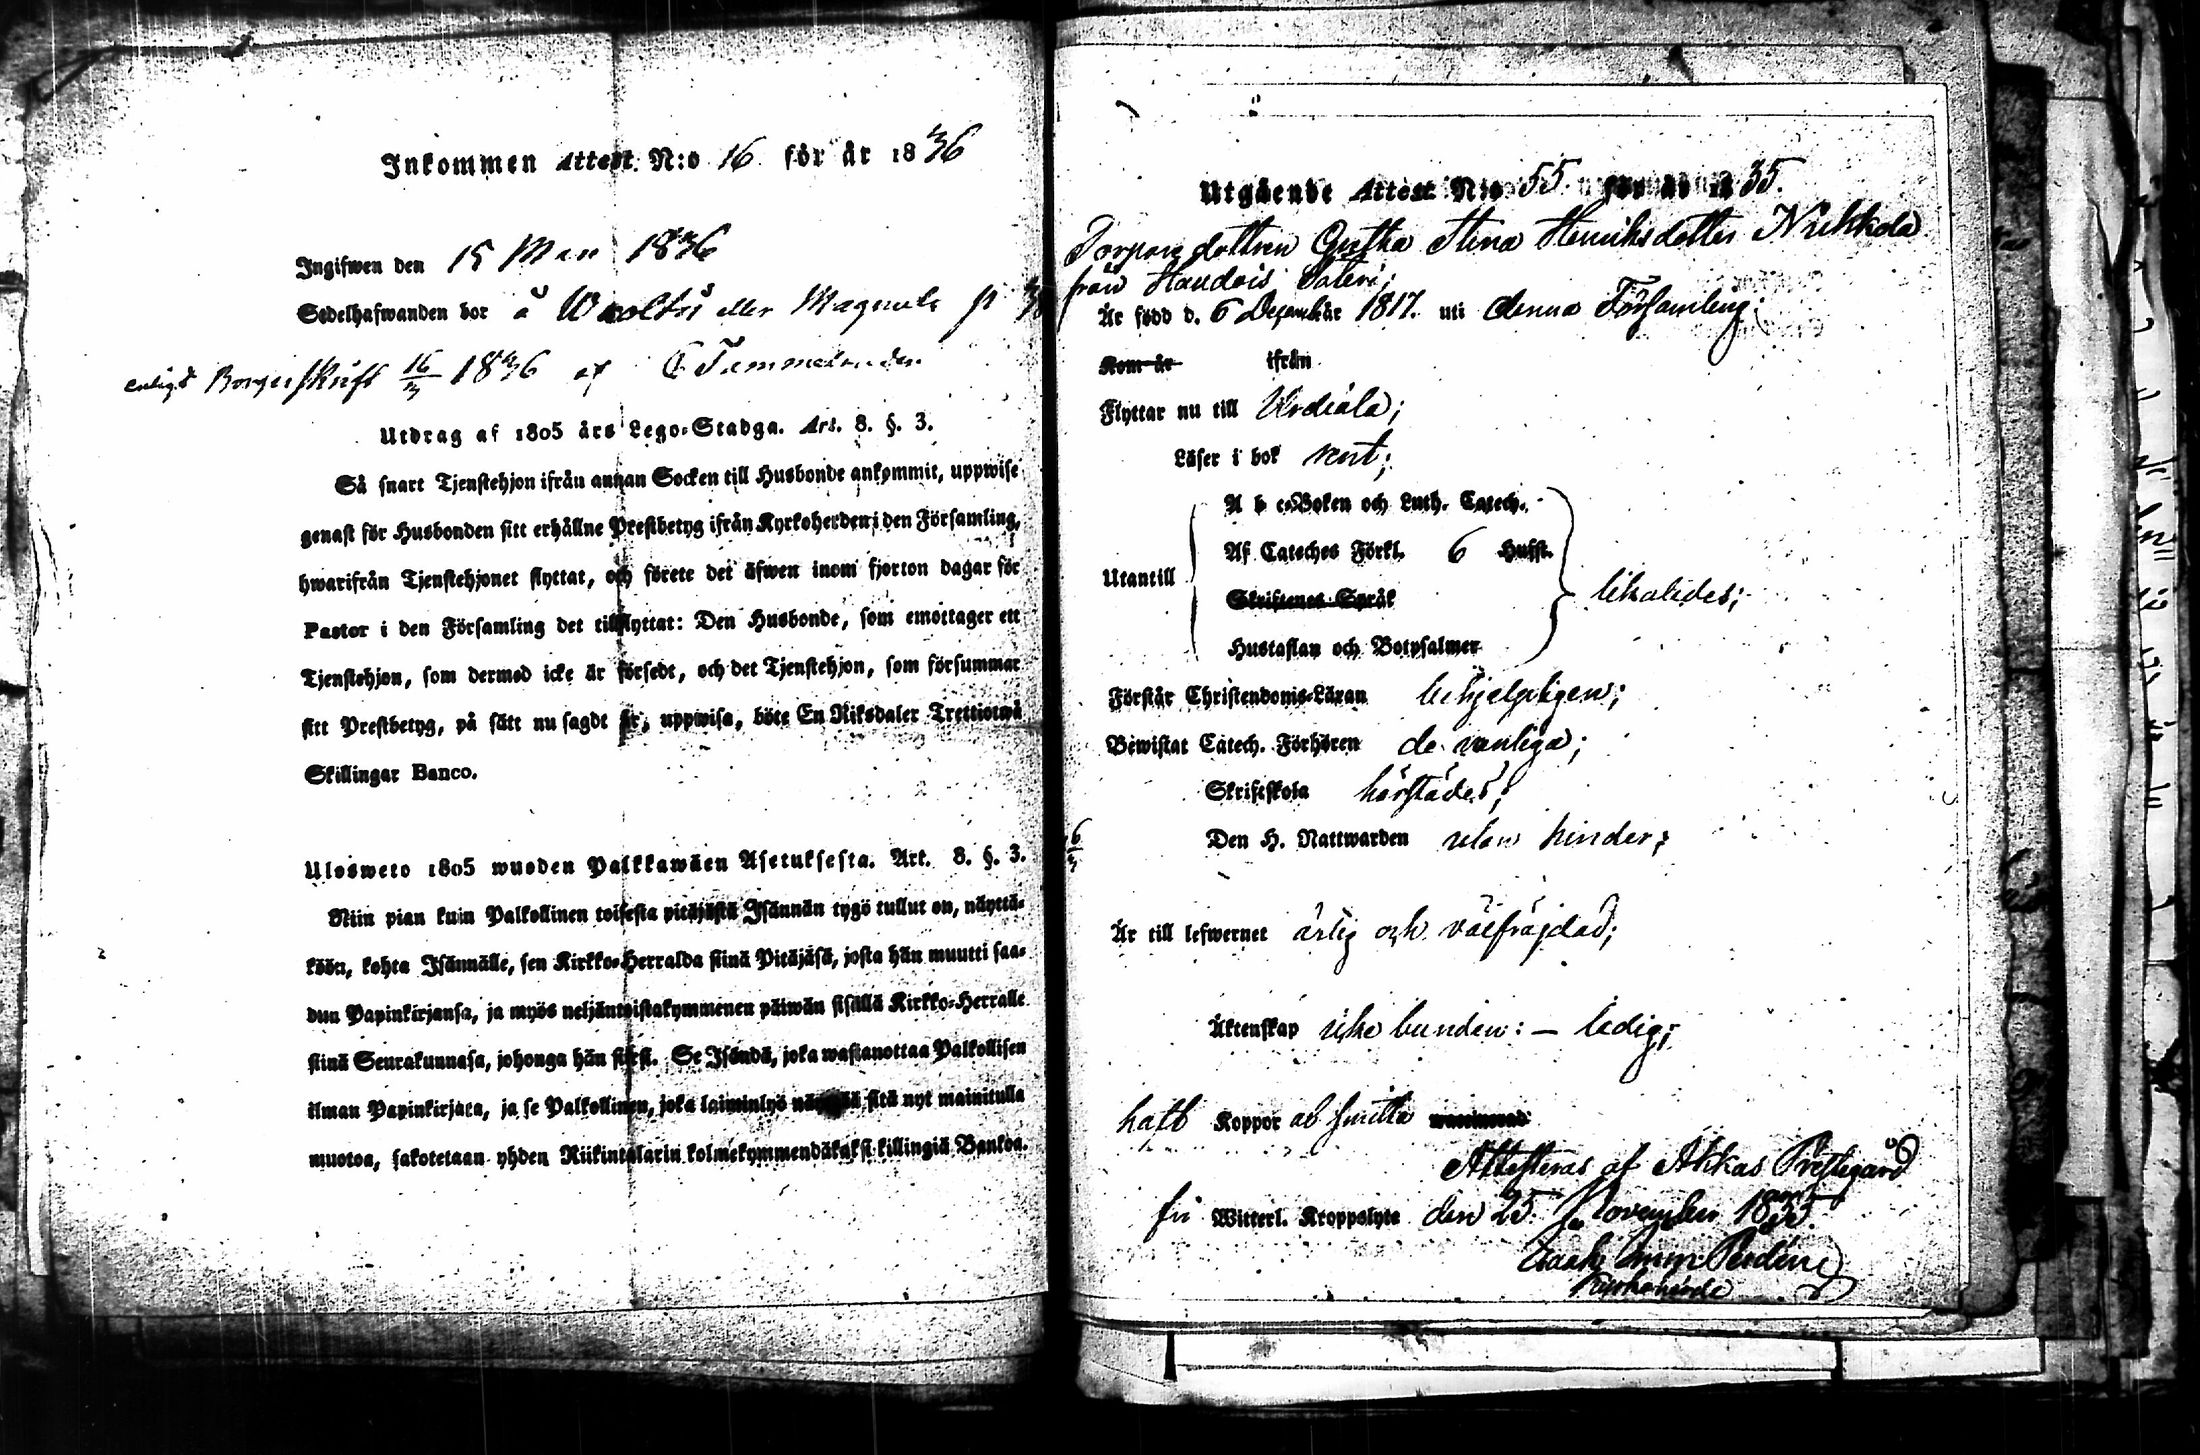 Inkommen Attest N:o 16 för år 1836
Ingifwen den 15 Mars 1836
Sedelhafwanden bor å eller
enligt 16/3 1836 af
Utdrag af 1805 års Lego-Stadga. Art. 8. §. 3.
Så snart Tjenstehjon ifrån annan Socken till Husbonde ankommit, uppwise
genast för Husbonden sitt erhållne Prestbetyg ifrån Kyrkoherden i den Församling,
hwarifrån Tjenstehjonet flyttat, och förete det äfwen inom fjorton dagar för
Pastor i den Församling det tillflyttat: Den Husbonde, som emottager ett
Tjenstehjon, som dermed icke är försedt, och det Tjenstehjon, som försummar
sitt Prestbetyg, på sätt nu sagdt är, uppwisa, böte En Riksdaler Trettiotwå
Skillingar Banco.
Ulosweto 1805 wuoden Palkkawäen Asetuksesta. Art. 8. §. 3.
Niin pian kuin Palkollinen toisesta pitäjästä Isännän tygö tullut on, näyttä-
köön, kohta Isännälle, sen Kirkko-Herralda siinä Pitäjäsä, josta hän muutti saa-
dun Papinkirjansa, ja myös neljäntoistakymmenen päiwän sisällä Kirkko-Herralle
siinä Seurakunnasa, johonga hän siirsi. Se Isändä, joka wastanottaa Palkollisen
ilman Papinkirjata, ja se Palkollinen, joka laiminlyö sitä nyt mainitulla
muotoa, sakotetaan yhden Riikintalarin kolmekymmendäkaksi killingiä Bankoa.
Utgående Attest N:o 55. för år 1835.
Torparedottren Gustha Stina Henriksdotter
från
Är född d. 6 December 1817. uti denna Församling;
Kom år ifrån
Flyttar nu till Urdiala;
Läser i bok rent;
A b c-Boken och Luth. Catech.
Utantill Af Cateches Förkl. 6 Hufst. likaledes;
Skriftenes Språk
Hustaflan och Botpsalmer
Förstår Christendoms-Läran behjelpligen;
Bewistat Catech. Förhören de vanliga;
Skriftskola härstädes;
Den H. Nattwarden utan hinder;
6/3
Är till lefwernet ärlig och välfräjdad;
Äktenskap icke bunden: – ledig;
haft Koppor af smitta waccinerad
Attesteras af Akkas Prestegård
fri Witterl. Kroppslyte den 25. November 1835.
Kyrkoherde